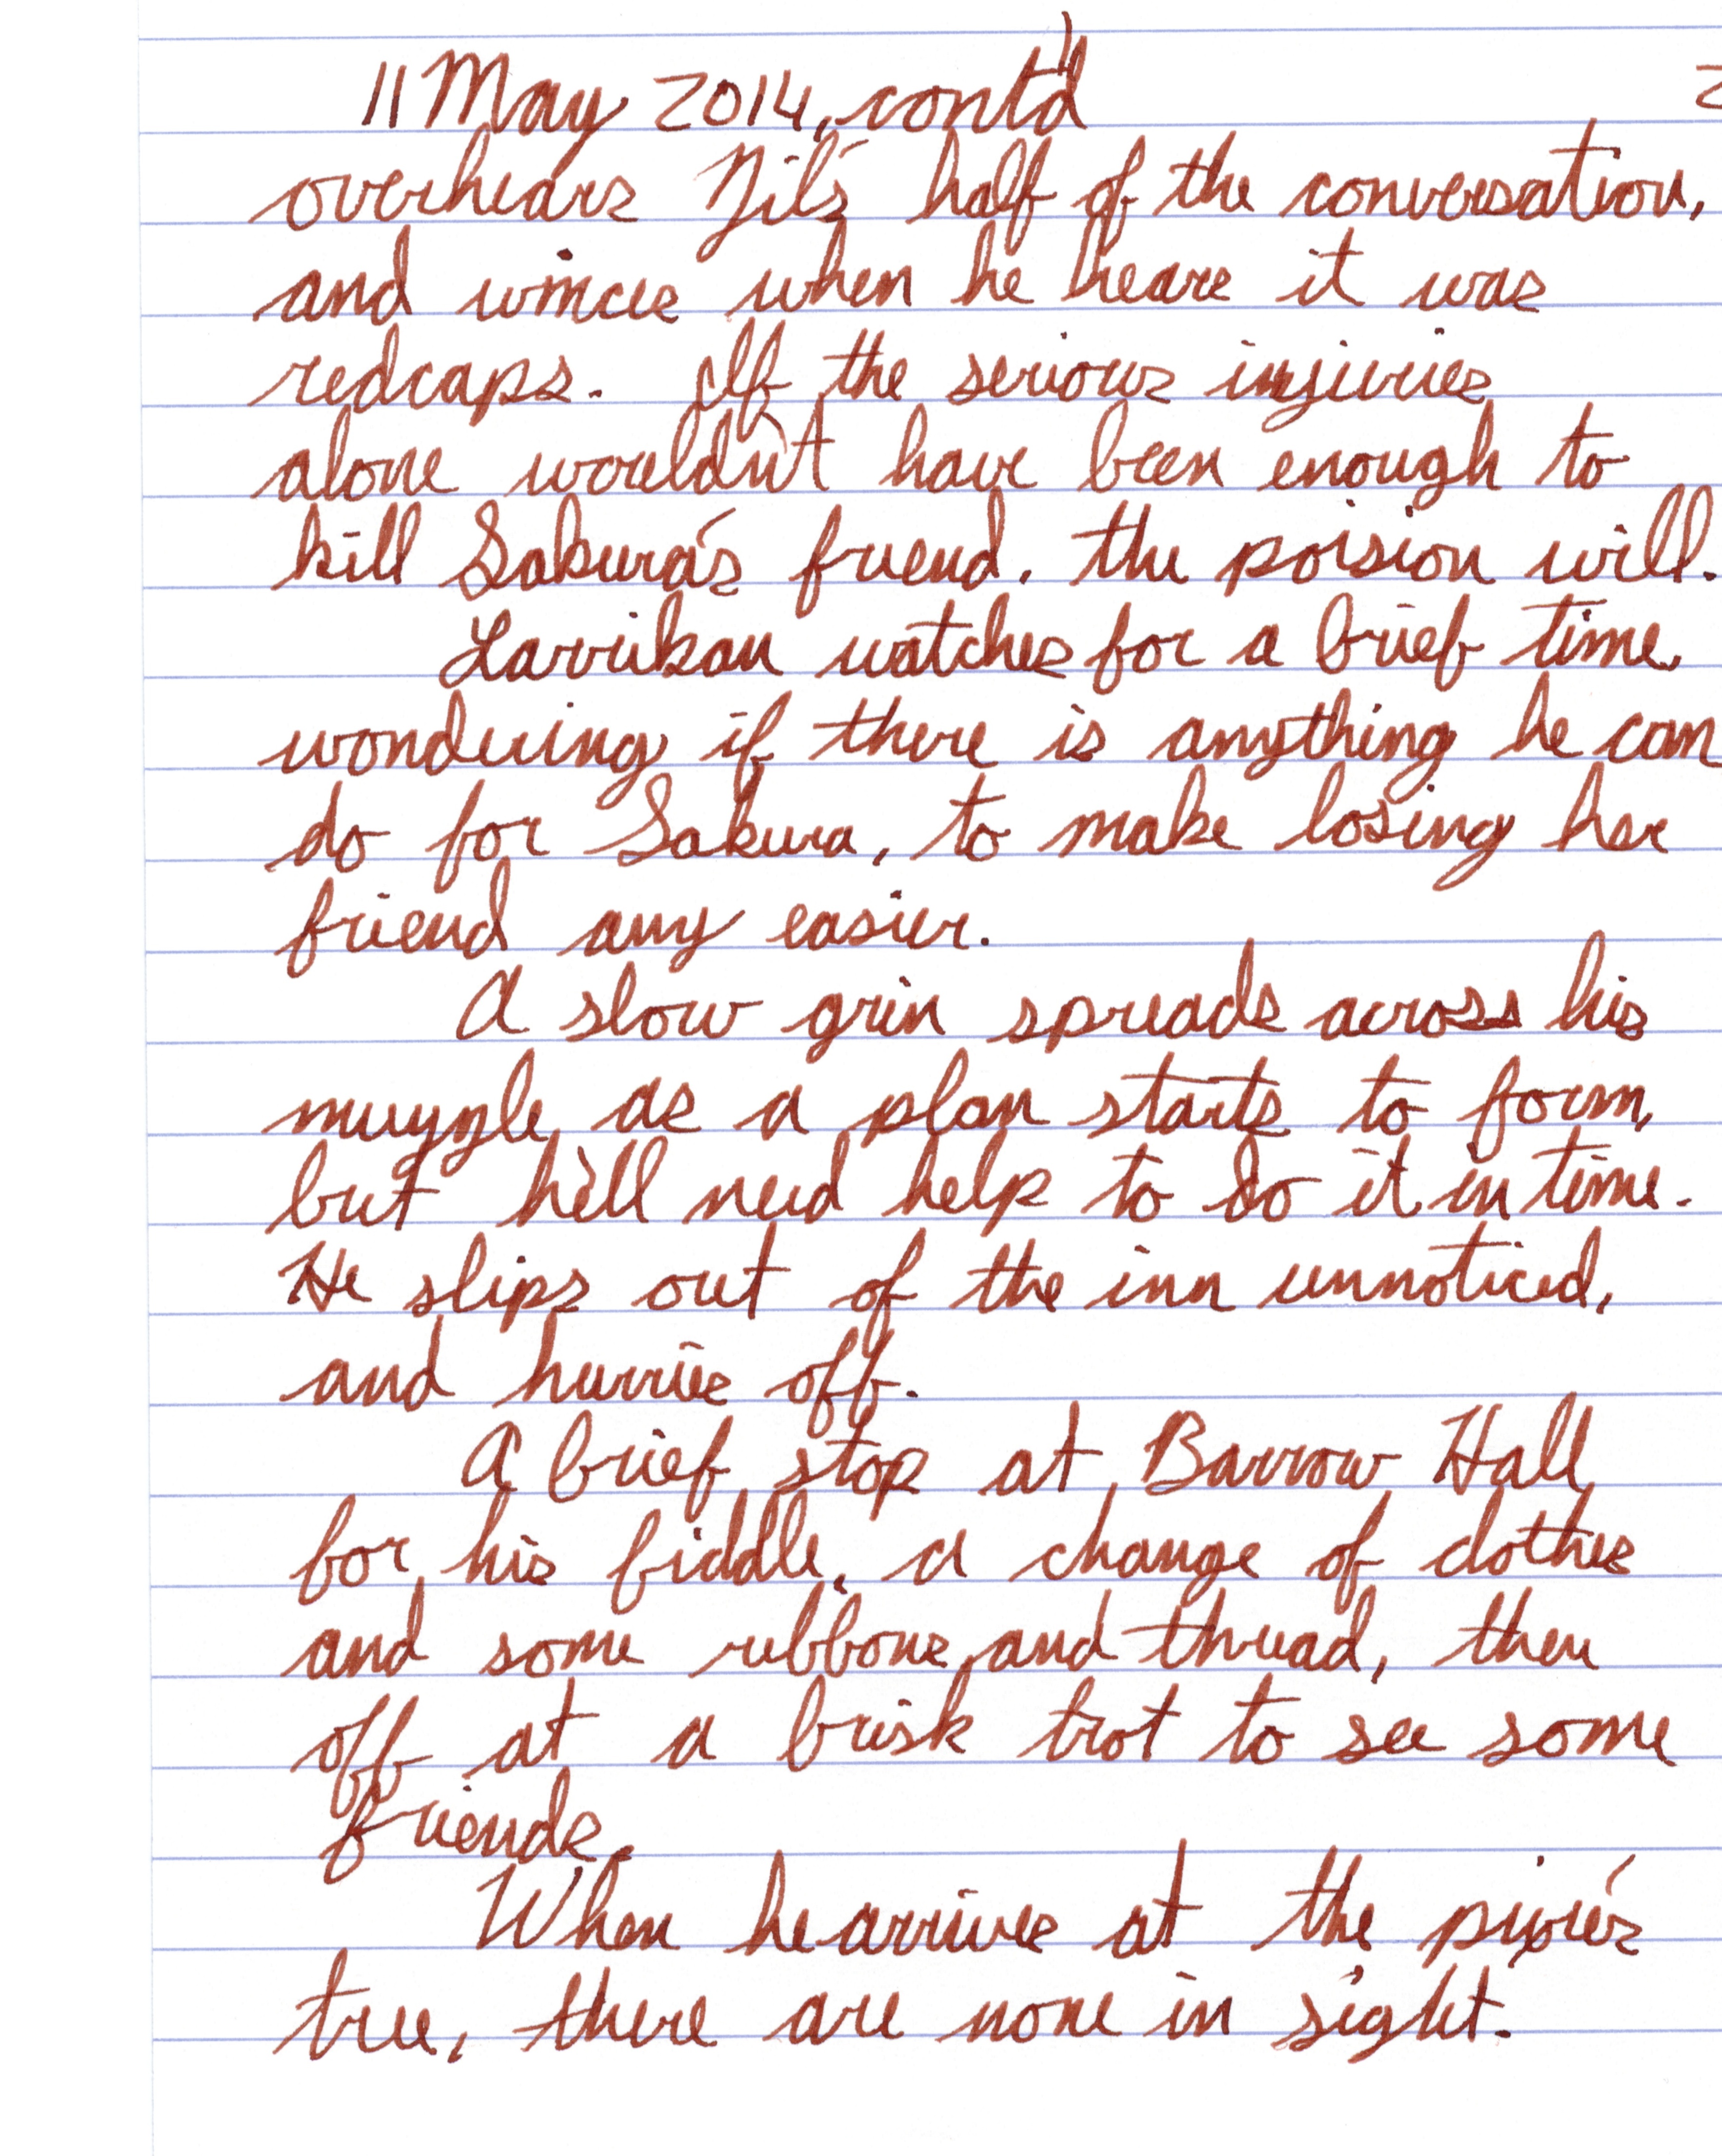 11 May 2014, cont'd 2
overhears Jil's half of the conversation,
and winces when he hears it was
redcaps. If the serious injuries
alone wouldn't have been enough to
kill Sakura's friend, the poision will.
Larrikan watches for a brief time,
wondering if there is anything he can
do for Sakura, to make losing her
friend any easier.
A slow grin spreads across his
muzzle, as a plan starts to form,
but he'll need help to do it in time.
He slips out of the inn unnoticed,
and hurries off.
A brief stop at Barrow Hall
for his fiddle, a change of clothes
and some ribbons and thread, then
off at a brisk trot to see some
friends.
When he arrives at the pixie's
tree, there are none in sight.